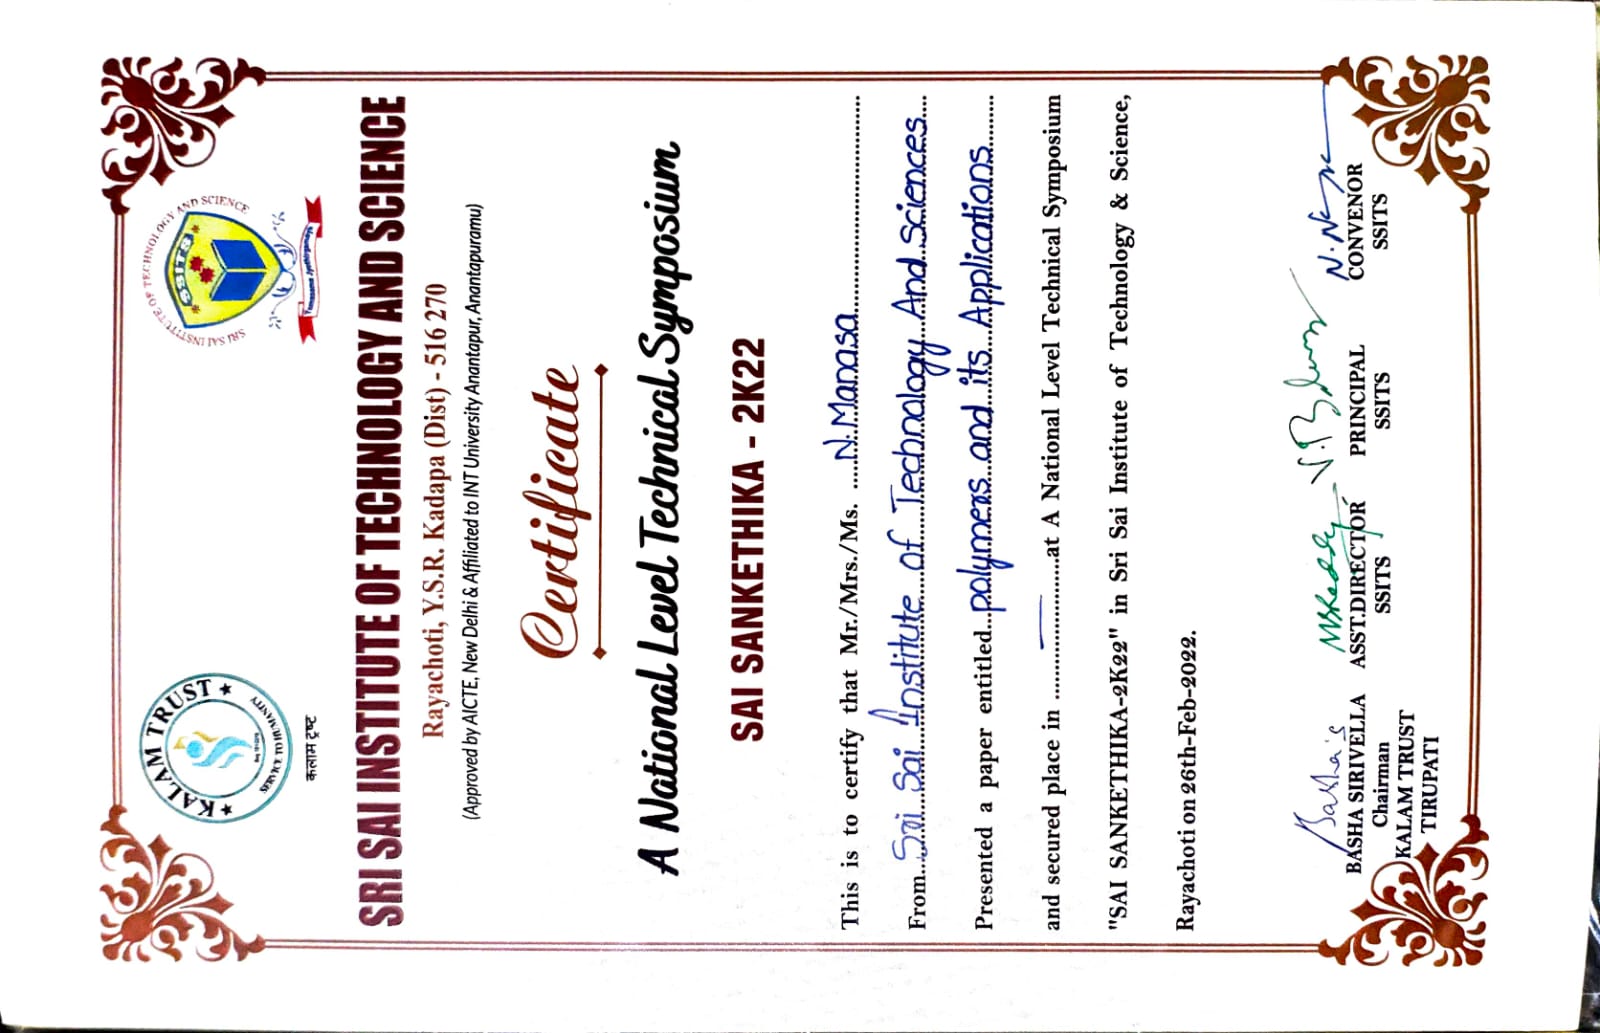 KALAM TRUST
SERVICE TO HUMANITY
कलाम ट्रष्ट
SRI SAI INSTITUTE OF TECHNOLOGY AND SCIENCE
SSITS
SRI SAI INSTITUTE OF TECHNOLOGY AND SCIENCE
Rayachoti, Y.S.R. Kadapa (Dist) - 516 270
(Approved by AICTE, New Delhi & Affiliated to JNT University Anantapur, Anantapuramu)
Certificate
A National Level Technical Symposium
SAI SANKETHIKA - 2K22
This is to certify that Mr./Mrs./Ms. ......N. Manasa......
From...Sri Sai Institute of Technology And Sciences...
Presented a paper entitled...polymers and its Applications......
and secured place in ......—......at A National Level Technical Symposium
"SAI SANKETHIKA-2K22" in Sri Sai Institute of Technology & Science,
Rayachoti on 26th-Feb-2022.
Basha's
BASHA SIRIVELLA
Chairman
KALAM TRUST
TIRUPATI
ASST.DIRECTOR
SSITS
PRINCIPAL
SSITS
CONVENOR
SSITS